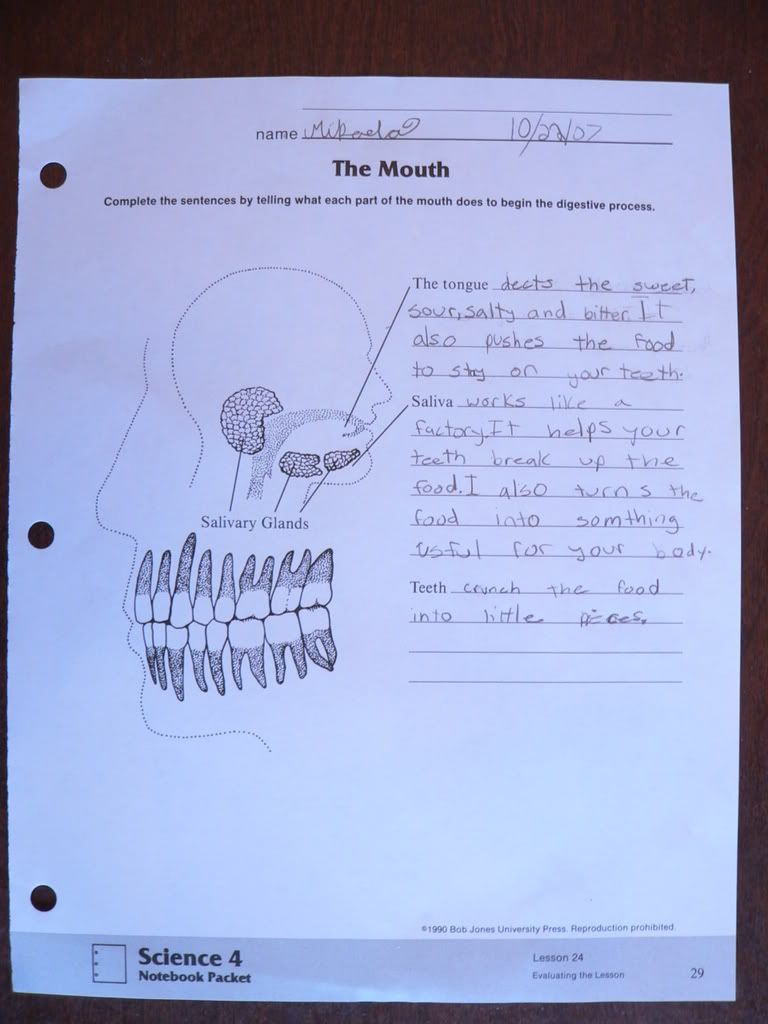 name Mikaela 10/22/07
The Mouth
Complete the sentences by telling what each part of the mouth does to begin the digestive process.
The tongue dects the sweet,
sour, salty and bitter. It
also pushes the food
to stay on your teeth.
Saliva works like a
factory. It helps your
teeth break up the
food. I also turns the
food into somthing
usful for your body.
Salivary Glands
Teeth crunch the food
into little pieces.
©1990 Bob Jones University Press. Reproduction prohibited.
Science 4
Notebook Packet
Lesson 24
Evaluating the Lesson
29